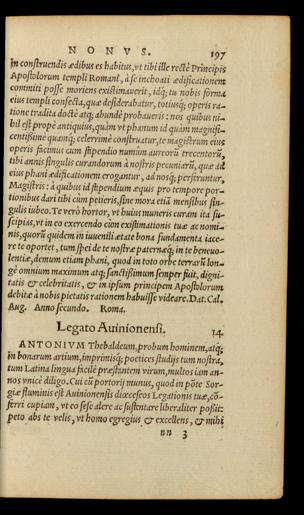 NONVS. 197
in construendis ædibus es habitus, vt tibi ille rectè Principis
Apostolorum templi Romani, à se inchoati ædificationem
committi posse moriens existimauerit, idq; tu nobis forma
eius templi confecta, quæ desiderabatur, totiusq; operis ra-
tione tradita doctè atq; abundè probaueris: nos quibus ni-
hil est propè antiquius, quàm vt phanum id quàm magnifi-
centissimè quamq; celerrimè construatur, te magistrum eius
operis facimus cum stipendio numûm aureorû trecentorû,
tibi annis singulis curandorum à nostris pecuniarû, quæ ad
eius phani ædificationem erogantur, ad nosq; perferuntur,
Magistris: à quibus id stipendium æquis pro tempore por-
tionibus dari tibi cùm petieris, sine mora etiã mensibus sin-
gulis iubeo. Te verò hortor, vt huius muneris curam ita su-
scipias, vt in eo exercendo cùm existimationis tuæ ac nomi-
nis, quorû quidem in iuuenili ætate bona fundamenta iace-
re te oportet, tum spei de te nostræ paternæq; in te beneuo-
lentiæ, demum etiam phani, quod in toto orbe terrarû lon-
gè omnium maximum atq; sanctissimum semper fuit, digni-
tatis & celebritatis, & in ipsum principem Apostolorum
debitæ à nobis pietatis rationem habuisse videare. Dat. Cal.
Aug. Anno secundo. Roma.
Legato Auinionensi. 14.
ANTONIVM Thebaldeum, probum hominem, atq;
in bonarum artium, inprimisq; poëtices studijs tum nostra,
tum Latina lingua facilè præstantem virum, multos iam an-
nos vnicè diligo. Cui cû portorij munus, quod in põte Sor-
giæ fluminis est Auinionensis diœceseos Legationis tuæ, cõ-
ferri cupiam, vt eo sese alere ac sustentare liberaliter possit:
peto abs te velis, vt homo egregius & excellens, & mihi
nn 3